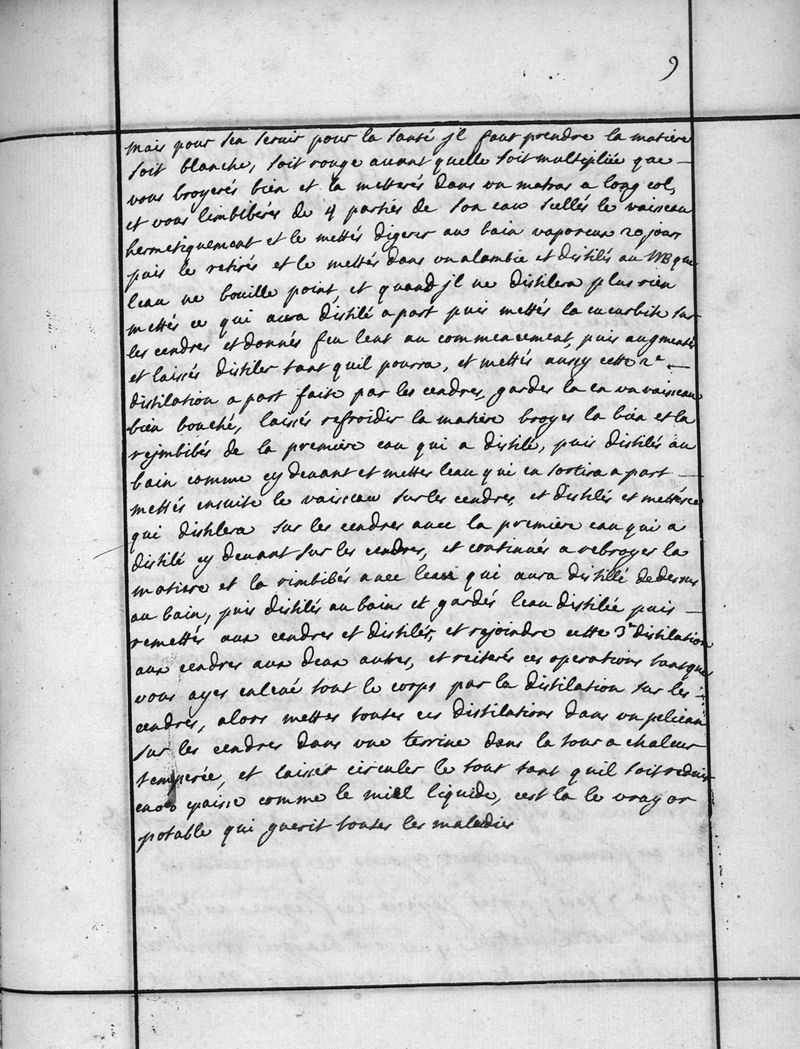 9
mais pour sen seruir pour la santé jl faut prendre la matiere
soit blanche, soit rouge auant quelle soit multipliée que
vous broyerés bien et la metterés dans un matras a long col,
et vous limbiberés de 4 parties de son eau sellés le vaisseau
hermetiquement et le mettés digerer au bain vaporeux 20 jours
puis le retirés et le mettés dans un alambic et distilés au MB que
leau ne bouille point, et quand jl ne distilera plus rien
mettés ce qui aura distilé a part puis mettés la cucurbite sur
les cendres et donnés feu lent au commencement, puis augmentés
et laissés distiler tant quil pourra, et mettés aussy cette 2e
distilation a part faite par les cendres, gardes la en un vaisseau
bien bouché, laissés refroidir la matiere broyes la bien et la
rejmbibés de la premiere eau qui a distilé, puis distilés au
bain comme cy deuant et mettes leau qui en sortira a part
mettés ensuite le vaisseau sur les cendres, et distilés et mettés ce
qui distilera sur les cendres auec la premiere eau qui a
distilé cy deuant sur les cendres, et continués a rebroyer la
matiere et la rimbibés auec leau qui aura distillé dedessus
au bain, puis distilés au bain et gardés leau distilée puis
remettés aux cendres et distilés, et rejoindre cette 3e distilation
aux cendres aux deux autres, et reiterés ces operations tant que
vous ayes enleué tout le corps par la distilation sur les
cendres, alors mettes toutes ces distilations dans un pelican
sur les cendres dans une terrine dans la tour a chaleur
temperée, et laisser circuler le tout tant quil soit reduit
epaisse comme le miel liquide, cest la le vray or
potable qui guerit toutes les maladies